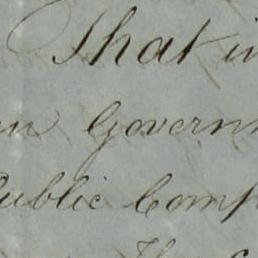 That
Govern
Public Comp